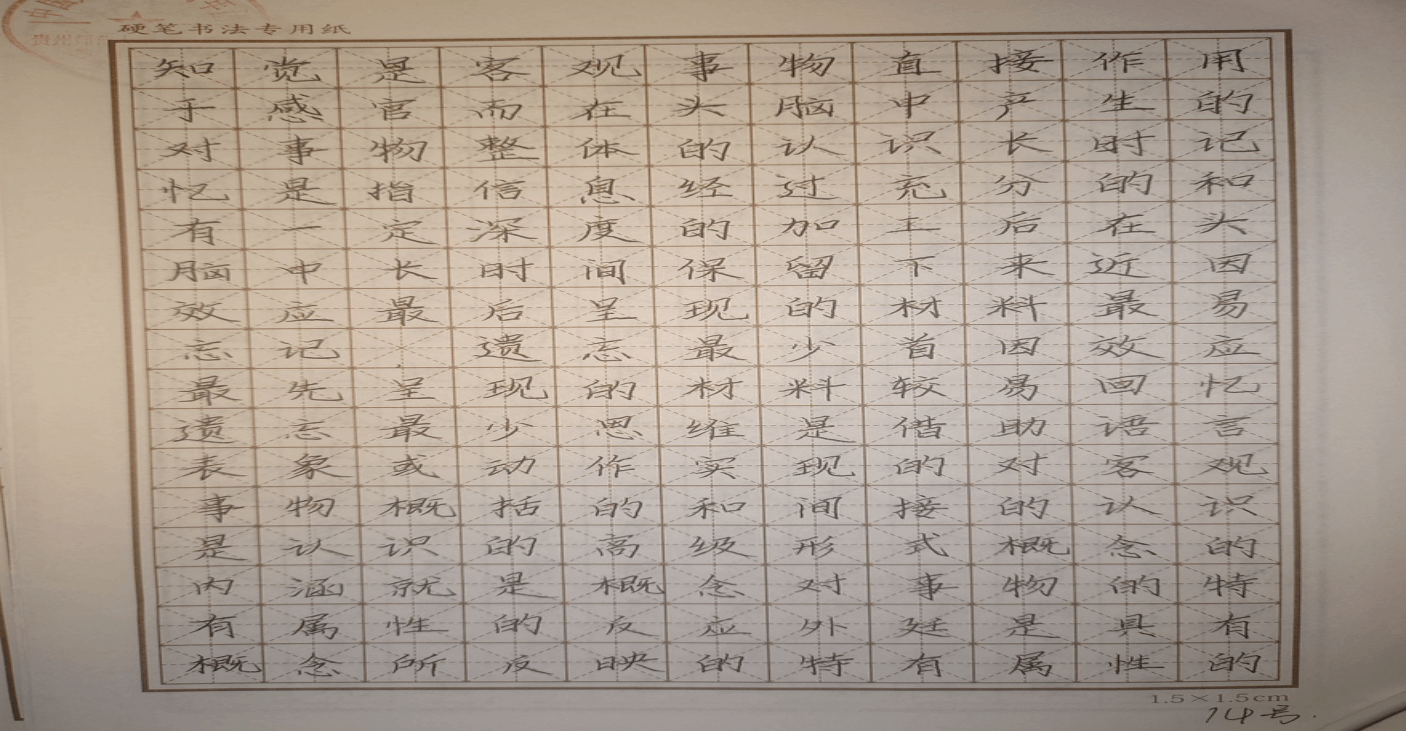 硬笔书法专用纸
知觉是客观事物直接作用
于感官而在头脑中产生的
对事物整体的认识长时记
忆是指信息经过充分的和
有一定深度的加工后在头
脑中长时间保留下来近因
效应最后呈现的材料最易
忘记遗忘最少首因效应
最先呈现的材料较易回忆
遗忘最少思维是借助语言
表象或动作实现的对客观
事物概括的和间接的认识
是认识的高级形式概念的
内涵就是概念对事物的特
有属性的反应外延是具有
概念所反映的特有属性的
1.5×1.5cm
14号.